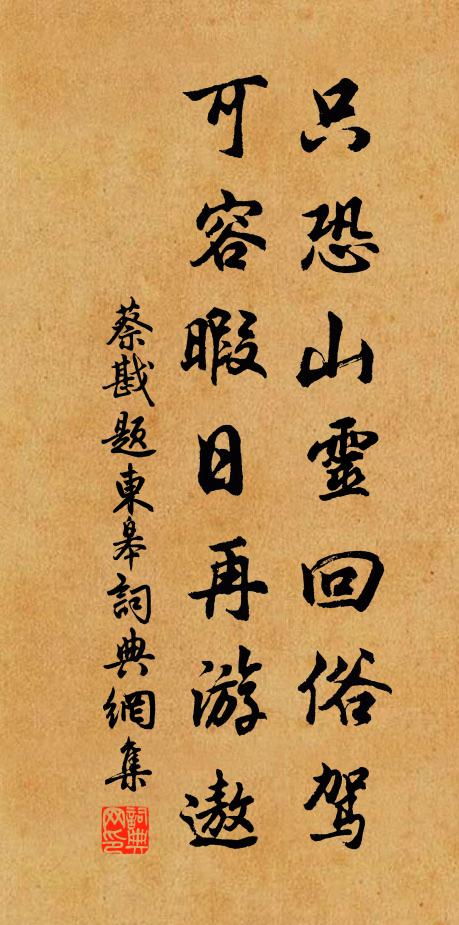 只恐山靈回俗駕
可容暇日再游遨
蔡戡題東皋詞典網集
詞典网印